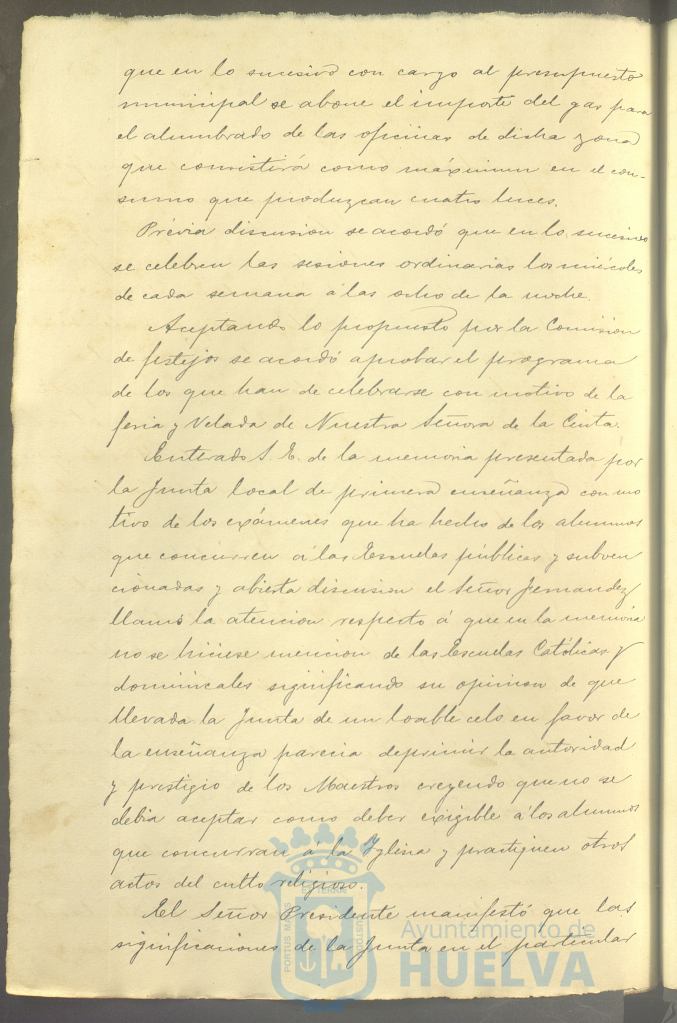 que en lo sucesivo con cargo al presupuesto
municipal se abone el importe del gas para
el alumbrado de las oficinas de dicha zona
que consistirá como máximun en el con-
sumo que produzcan cuatro luces.
Prévia discusion se acordó que en lo sucesivo
se celebren las sesiones ordinarias los miécoles
de cada semana á las ocho de la noche.
Aceptando lo propuesto por la Comision
de festejos se acordó aprobar el programa
de los que han de celebrarse con motivo de la
feria y Velada de Nuestra Señora de la Cinta.
Enterado S. E. de la memoria presentada por
la Junta local de primera enseñanza con mo
tivo de los exámenes que ha hecho de los alumnos
que concurren á las Escuelas públicas y subven
cionadas y abierta discusion el Señor Fernandez
llamó la atencion respecto á que en la memoria
no se hiciese mencion de las Escuelas Católicas y
dominicales significando su opinion de que
llevada la Junta de un loable celo en favor de
la enseñanza parecia deprimir la autoridad
y prestigio de los Maestros creyendo que no se
debia aceptar como deber exigible á los alumnos
que concurran á la Yglesia y practiquen otros
actos del culto religioso.
El Señor Presidente manifestó que las
significaciones de la Junta en el particular
PORTUS MARIS ET TERRAE CUSTODIA
Ayuntamiento de
HUELVA